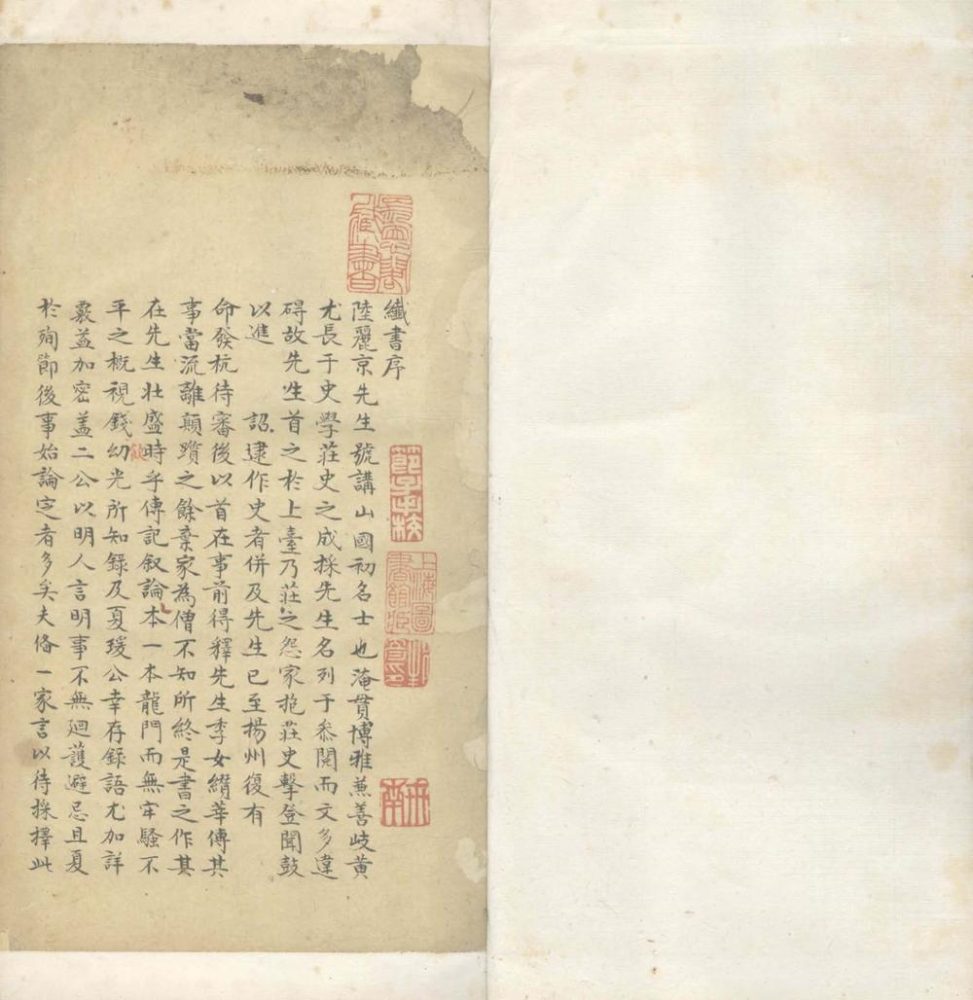 纖書序
陸麗京先生號講山國初名士也淹貫博雅兼善岐黄
尤長于史學莊史之成採先生名列于叅閱而文多違
碍故先生首之於上臺乃莊之怨家抱莊史擊登聞鼓
以進 詔逮作史者併及先生已至揚州復有
命發杭待審後以首在事前得釋先生季女纘華傳其
事當流離顛躓之餘棄家為僧不知所終是書之作其
在先生壯盛時乎傳記叙論本一本龍門而無牢騷不
平之概視錢幼光所知録及夏瑗公幸存録語尤加詳
覈益加密盖二公以明人言明事不無廻護避忌且夏
於殉節後事始論定者多矣夫俻一家言以待採擇此
上海圖書館收藏